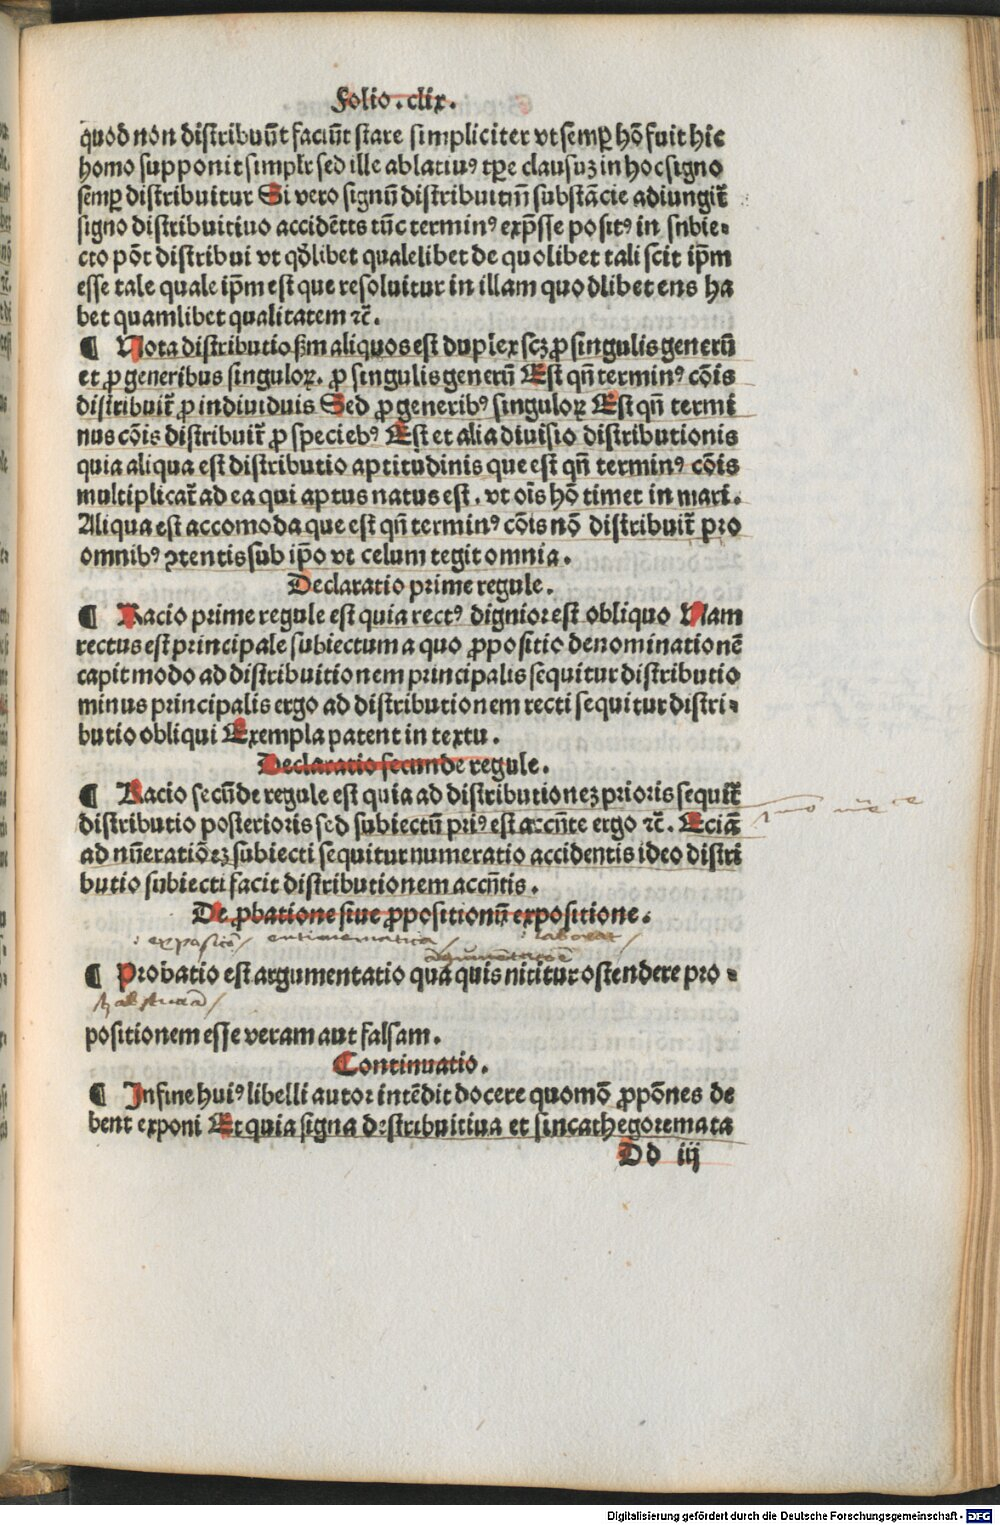 Folio. clix.
quod non distribuūt faciūt stare simpliciter vt semꝑ hō fuit hic
homo supponit simplr̄ sed ille ablatiuꝰ tp̄e clausuꝫ in hoc signo
semꝑ distribuitur Si vero signū distribuitiuū substācie adiungit᷑
signo distribuitiuo accidētis tūc terminꝰ exp̄sse positꝰ in snbie⸗
cto pōt distribui vt qdlibet qualelibet de quolibet tali scit ip̄m
esse tale quale ip̄m est que resoluitur in illam quodlibet ens ha
bet quamlibet qualitatem ⁊c̄.
¶ Nota distributio ẜm aliquos est duplex scꝫ ꝓ singulis generū
et ꝓ generibus singuloꝝ. ꝓ singulis generū Est qn̄ terminꝰ cōis
distribuit᷑ ꝓ indiuiduis Sed ꝓ generibꝰ singuloꝝ Est qn̄ termi
nus cōis distribuit᷑ ꝓ speciebꝰ Est et alia diuisio distributionis
quia aliqua est distributio aptitudinis que est qn̄ terminꝰ cōis
multiplicat᷑ ad ea qui aptus natus est. vt oīs hō timet in mari.
Aliqua est accomoda que est qn̄ terminꝰ cōis nō distribuit᷑ pro
omnibꝰ ꝯtentis sub ip̄o vt celum tegit omnia.
Declaratio prime regule.
¶ Racio prime regule est quia rectꝰ dignior est obliquo Nam
rectus est principale subiectum a quo ꝓpositio denominationē
capit modo ad distribuitionem principalis sequitur distributio
minus principalis ergo ad distributionem recti sequitur distri⸗
butio obliqui Exempla patent in textu.
Declaratio secunde regule.
¶ Racio secūde regule est quia ad distributioneꝫ prioris sequit᷑
distributio posterioris sed subiectū priꝰ est accn̄te ergo ⁊c̄. Eciā
ad nūeratiōeꝫ subiecti sequitur numeratio accidentis ideo distri
butio subiecti facit distributionem accn̄tis.
De ꝓbatione siue ꝓpositionū expositione.
¶ Probatio est argumentatio qua quis nititur ostendere pro⸗
positionem esse veram aut falsam.
Continuatio.
¶ In fine huiꝰ libelli autor intēdit docere quomō ꝓpōnes de
bent exponi Et quia signa distribuitiua et sincathegoremata
Dd iij
Digitalisierung gefördert durch die Deutsche Forschungsgemeinschaft - DFG